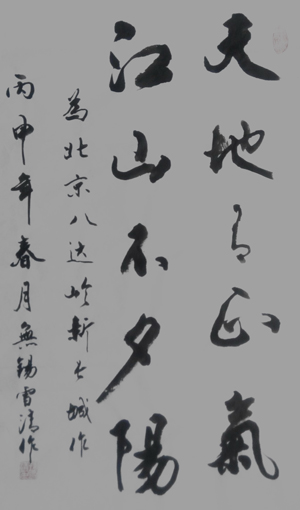 天地有正氣
江山不夕陽
為北京八达岭新长城作
丙申年春月無錫雪清作